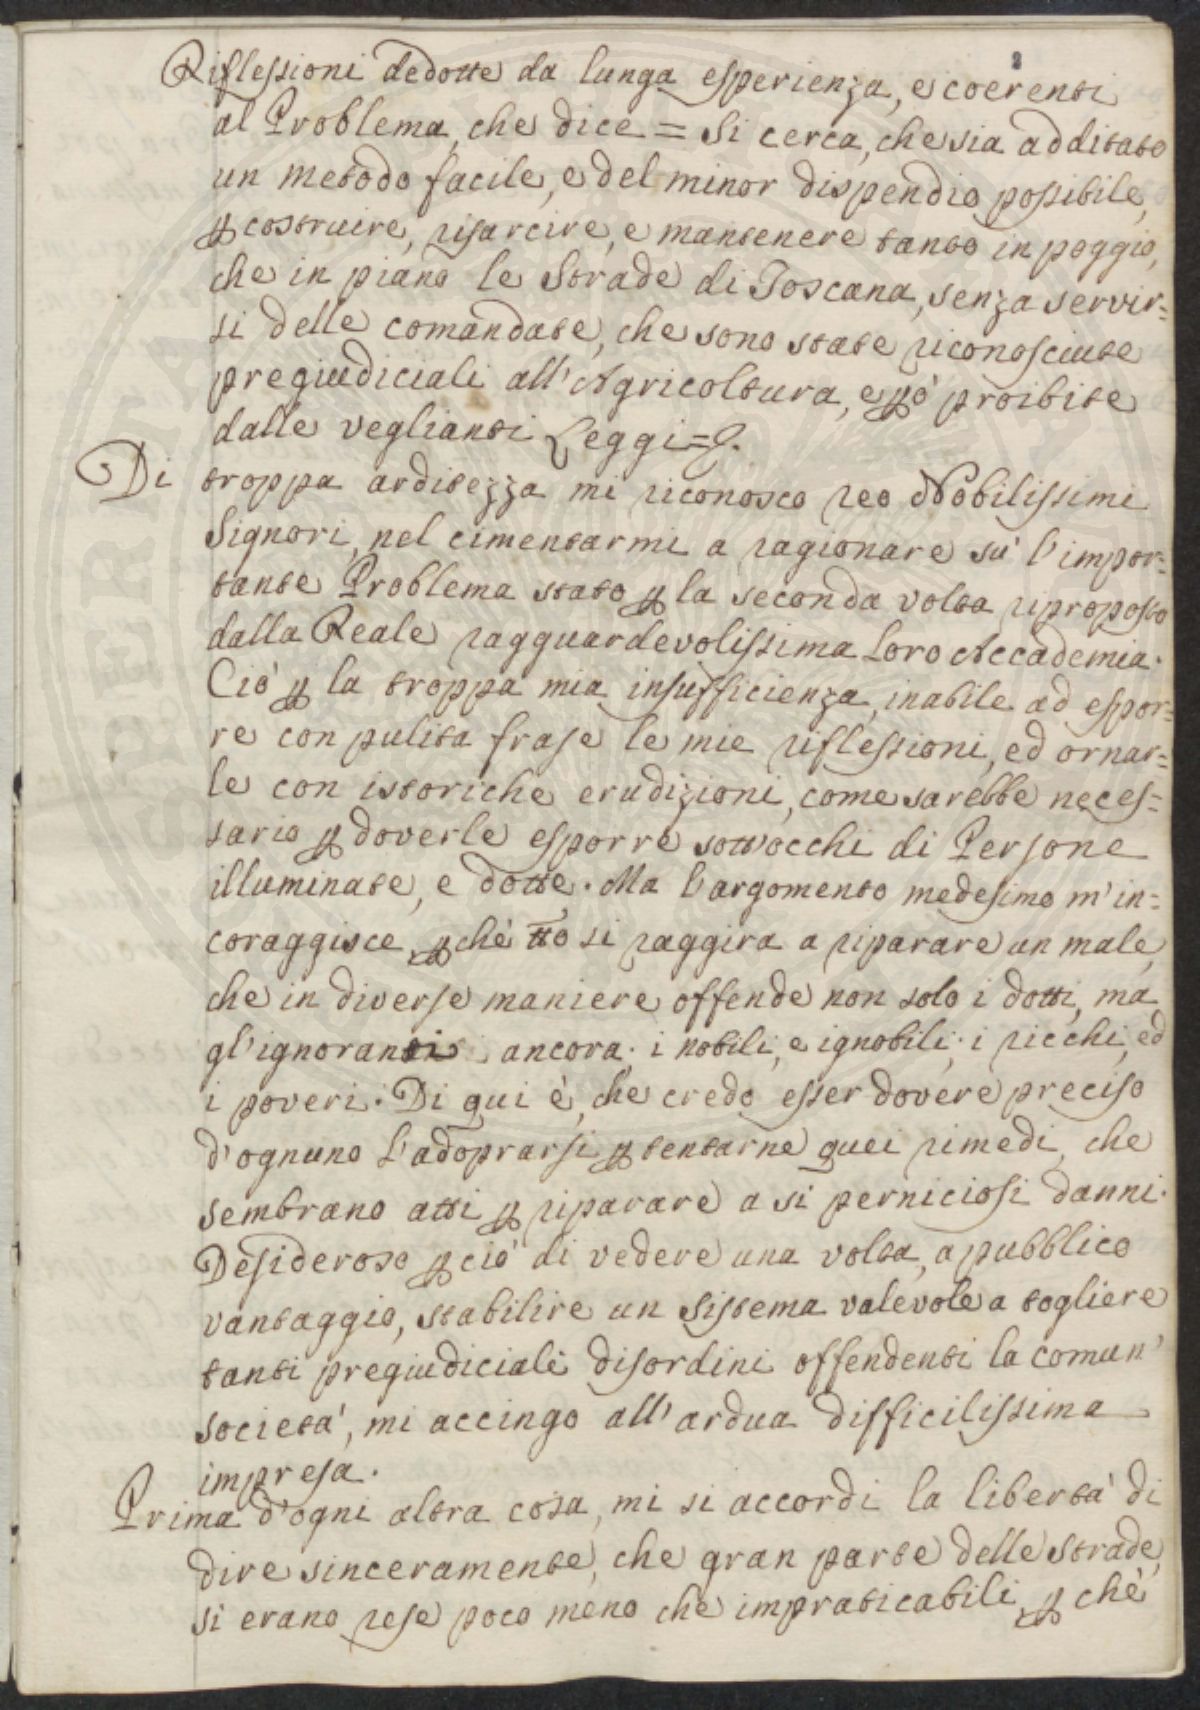 2
Riflessioni dedotte da lunga esperienza, e coerenti
al Problema, che dice = Si cerca, che sia additato
un metodo facile, e del minor dispendio possibile,
ꝑ costruire, risarcire, e mantenere tanto in poggio,
che in piano le Strade di Toscana, senza servir=
si delle comandate, che sono state riconosciute
pregiudiciali all'Agricoltura, e ꝑò proibite
dalle veglianti Leggi=
Di troppa arditezza mi riconosco reo Nobilissimi
Signori, nel cimentarmi a ragionare su' l'impor=
tante Problema stato ꝑ la seconda volta riproposto
dalla Reale ragguardevolissima Loro Accademia.
Ciò ꝑ la troppa mia insufficienza, inabile ad espor=
re con pulita frase le mie riflessioni, ed ornar=
le con istoriche erudizioni, come sarebbe neces=
sario ꝑ doverle esporre sott'occhi di Persone
illuminate, e dotte. Ma l'argomento medesimo m'in=
coraggisce, ꝑchè tto si raggira a riparare un male,
che in diverse maniere offende non solo i dotti, ma
gl'ignoranti ancora; i nobili, e ignobili; i ricchi, ed
i poveri. Di qui è, che credo esser dovere preciso
d'ognuno l'adoprarsi ꝑ tentarne quei rimedi, che
sembrano atti ꝑ riparare a sì perniciosi danni.
Desideroso ꝑciò di vedere una volta, a pubblico
vantaggio, stabilire un Sistema valevole a togliere
tanti pregiudiciali disordini offendenti la comun'
società, mi accingo all'ardua difficilissima
impresa.
Prima d'ogni altra cosa, mi si accordi la libertà di
dire sinceramente, che gran parte delle Strade,
si erano rese poco meno che impraticabili, ꝑchè